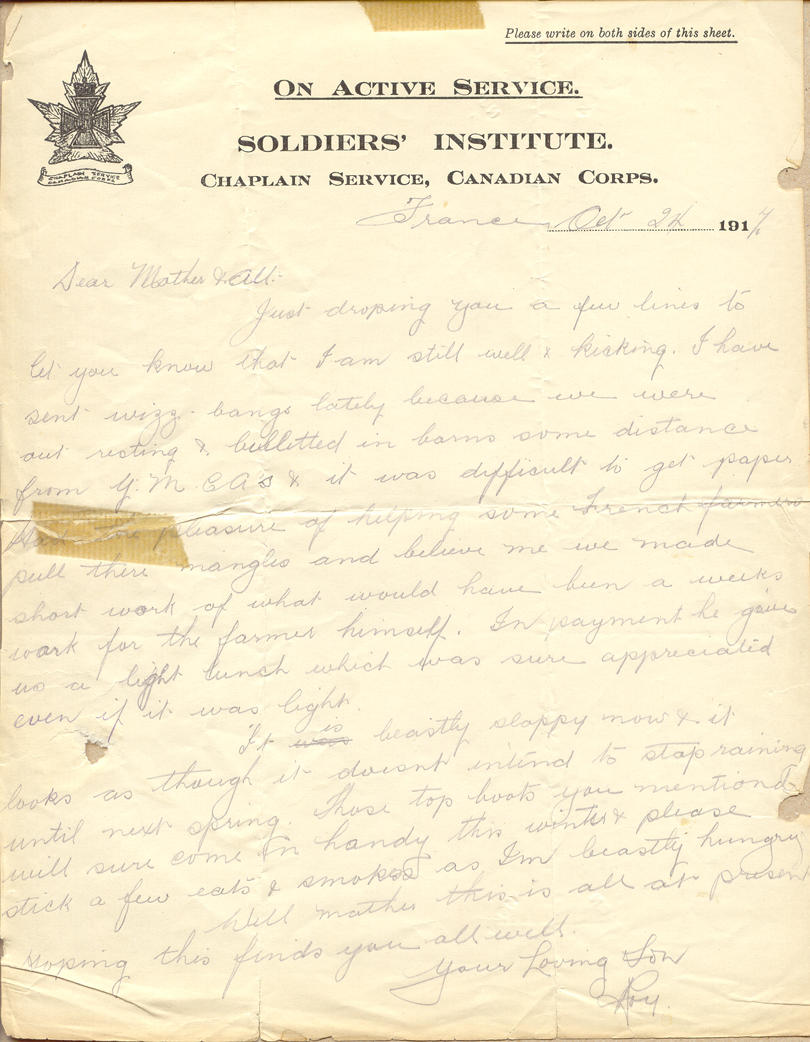 Please write on both sides of this sheet.
ON ACTIVE SERVICE.
SOLDIERS' INSTITUTE.
CHAPLAIN SERVICE, CANADIAN CORPS.
CHAPLAIN SERVICE
CANADIAN CORPS
France, Oct 24 1917
Dear Mother & All:-
Just droping you a few lines to
let you know that I am still well & kicking. I have
sent wizz-bangs lately because we were
out resting & billetted in barns some distance
from Y.M.C.A's & it was difficult to get paper
Had the pleasure of helping some French farmers
pull there mangles and believe me we made
short work of what would have been a weeks
work for the farmer himself. In payment he gave
us a light lunch which was sure appreciated
even if it was light.
It was is beastly sloppy now & it
looks as though it doesnt intend to stop raining
until next spring. Those top boots you mentiond
will sure come in handy this winter & please
stick a few eats & smokes as I'm beastly hungry
Well mother this is all at present
Hoping this finds you all well.
Your Loving Son
Roy.